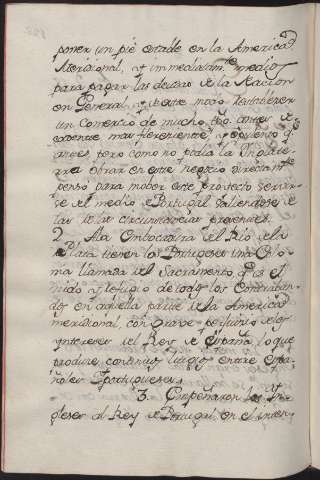 poner un pie estable en la America
Meridional, y inmediatam.te medios
para pagar las deudas de la Nacion
en General, y de este modo establecer
un Comercio de mucho
mas floreciente, y opulento q.e
antes, pero como no podia la Inglate
rra obrar en este negocio directam.te
penso para mober este proyecto serrar
se del medio de Portugal valiendose de
las circunstancias presentes.
2. A la Embocadura del Rio de la
Plata tienen los Portugueses una Colo
nia llamada del Sacramento, q.e es el
nido y refugio de todos los Contraban
dos en aquella parte de la America
meridional, con grave perjuicio de los
yntereses del Rey de España, lo que
produce continuos litigios entre Espa
ñoles y Portugueses.
3. Empeñaron los Yn
gleses al Rey de Portugal, en el inten